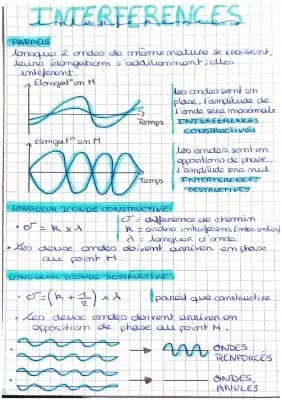 INTERFERENCES
Interferences
RAPPELS
Lorsque 2 ondes de même nature se croisent,
leurs élongations s'additionnent ; elles
interfèrent.
Elongat° en M
Les ondes sont en
phase, l'amplitude de
l'onde sera maximale
INTERFÉRENCES
CONSTRUCTIVES
Temps
Elongat° en M
Les ondes sont en
oppositions de phase,
l'amplitude sera nul
INTERFÉRENCES
DESTRUCTIVES
Temps
LONGUEUR D'ONDE CONSTRUCTIVE
• σ = k x λ
σ = différence de chemin
k = ordre interférence
λ = longueur d'onde
• Les deux ondes doivent arriver en phase
au point M.
LONGUEUR D'ONDE DESTRUCTIVE
• σ = (k + 1/2) x λ
pareil que constructive
• Les deux ondes doivent arriver en
opposition de phase au point M.
ONDES
RENFORCÉS
ONDES
ANNULÉS